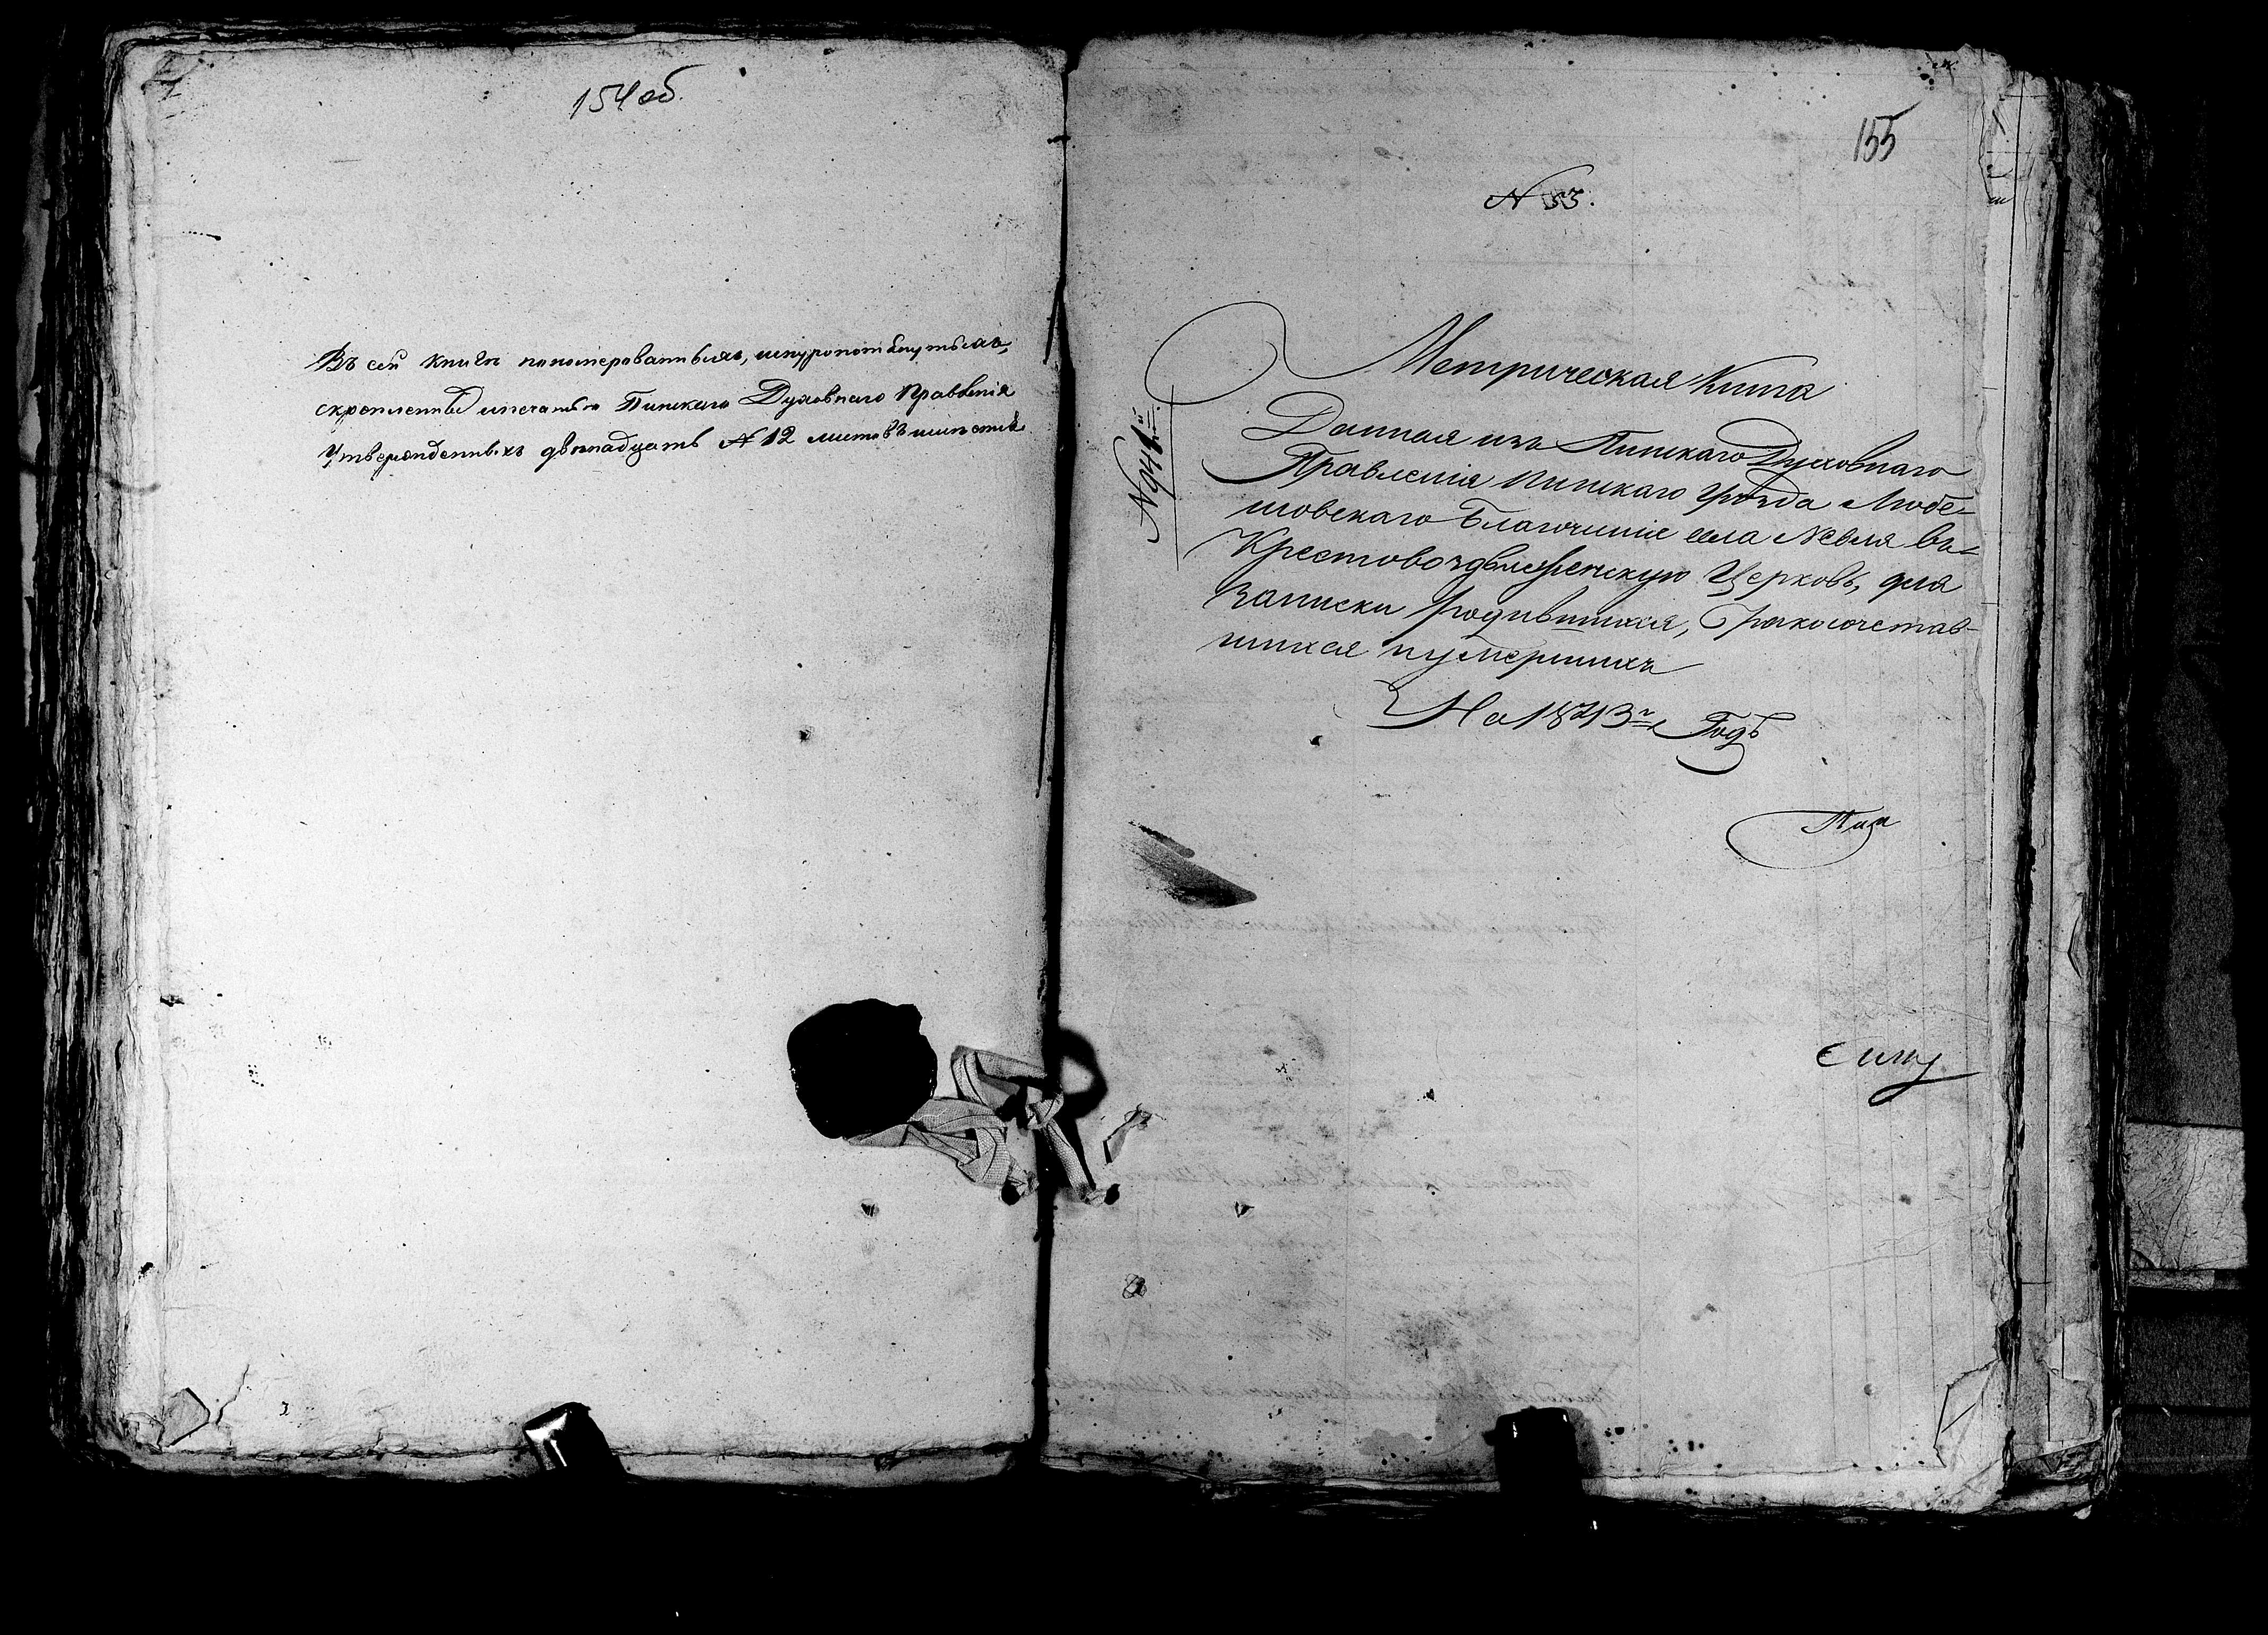 154 об.
Въ сей книгѣ пономерованныхъ, шнуропотянутыхъ,
скрепленныхъ и печатью Пинскаго Духовнаго Правленія
утвержденныхъ двенадцать № 12 листовъ
155
N 53.
N 941й
Метрическая Книга
Данная изъ Пинскаго Духовнаго
Правленія Пинскаго Уезда Любе-
шовскаго Благочинія села Невля въ
Крестовоздвиженскую Церковь, для
записки родившихся, бракосочетав-
шихся и умершихъ
На 1843й Годъ